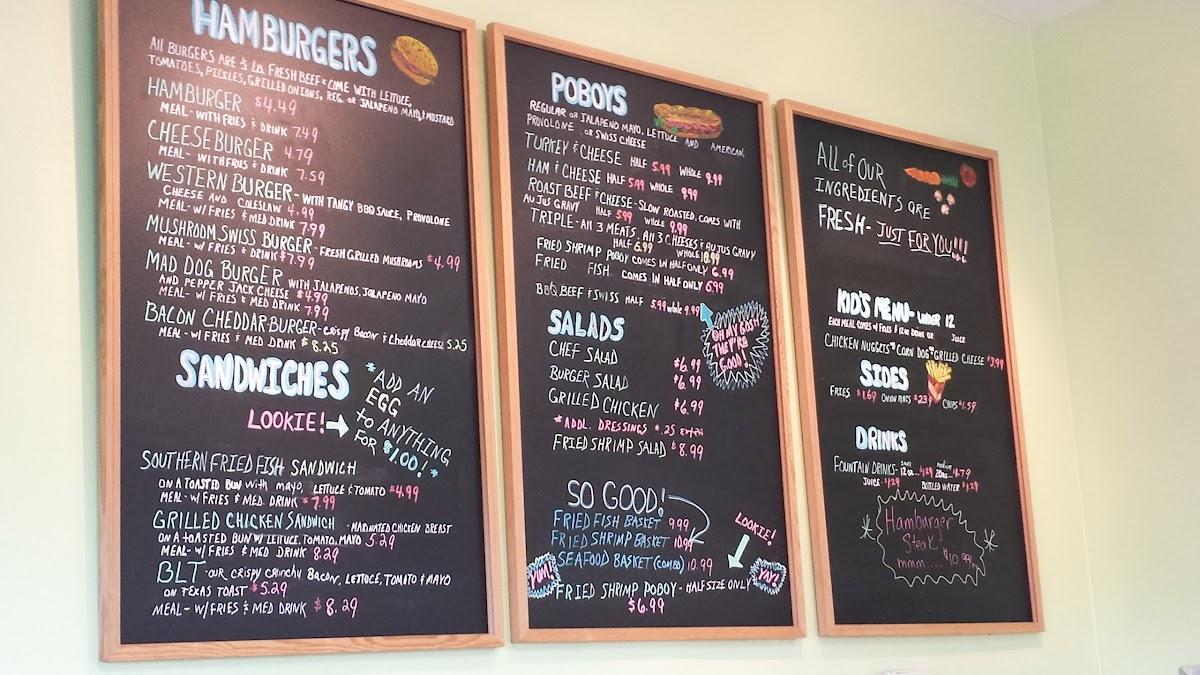 HAMBURGERS
All BURGERS ARE 1/3 LB. FRESH BEEF & COME WITH LETTUCE,
TOMATOES, PICKLES, GRILLED ONIONS, REG. OR JALAPENO MAYO, & MUSTARD
HAMBURGER $4.49
MEAL-WITH FRIES & DRINK 7.49
CHEESEBURGER 4.79
MEAL- WITH FRIES & DRINK 7.59
WESTERN BURGER-WITH TANGY BBQ SAUCE, PROVOLONE
CHEESE AND COLESLAW 4.99
MEAL-W/FRIES & MED DRINK 7.99
MUSHROOM SWISS BURGER-FRESH GRILLED MUSHROOMS $4.99
MEAL-W/ FRIES & DRINK $7.99
MAD DOG BURGER WITH JALAPENOS, JALAPENO MAYO
AND PEPPER JACK CHEESE $4.99
MEAL-W/ FRIES & MED DRINK 7.99
BACON CHEDDAR-BURGER-CRISPY BACON & CHEDDAR CHEESE 5.25
MEAL-W/ FRIES & MED DRINK $8.25
SANDWICHES
LOOKIE!
*ADD AN
EGG
to ANYTHING
FOR $1.00!*
SOUTHERN FRIED FISH SANDWICH
ON A TOASTED BUN WITH MAYO, LETTUCE & TOMATO $4.99
MEAL-W/FRIES & MED. DRINK $7.99
GRILLED CHICKEN SANDWICH - MARINATED CHICKEN BREAST
ON A TOASTED BUN W/LETTUCE, TOMATO, MAYO 5.29
MEAL-W/FRIES & MED DRINK 8.29
BLT-OUR CRISPY CRUNCHY BACON, LETTUCE, TOMATO & MAYO
ON TEXAS TOAST $5.29
MEAL-W/FRIES & MED DRINK $8.29
POBOYS
REGULAR OR JALAPENO MAYO, LETTUCE AND AMERICAN,
PROVOLONE OR SWISS CHEESE
TURKEY & CHEESE HALF 5.99 WHOLE 9.99
HAM & CHEESE HALF 5.99 WHOLE 9.99
ROAST BEEF & CHEESE-SLOW ROASTED, COMES WITH
AU JUS GRAVY HALF 5.99 WHOLE 9.99
TRIPLE-All 3 MEATS, All 3 CHEESES & AU JUS GRAVY
HALF 6.99 WHOLE 10.99
FRIED SHRIMP POBOY COMES IN HALF ONLY 6.99
FRIED FISH COMES IN HALF ONLY 6.99
BBQ BEEF & SWISS HALF 5.99 whole 9.99
OH MY GOSH
THEY'RE
GOOD!
SALADS
CHEF SALAD $6.99
BURGER SALAD $6.99
GRILLED CHICKEN $6.99
*ADDL. DRESSINGS $.25 EXTRA
FRIED SHRIMP SALAD $8.99
SO GOOD!
FRIED FISH BASKET 9.99
FRIED SHRIMP BASKET 10.99
SEAFOOD BASKET (COMBO) 10.99
LOOKIE!
YUM!
YAY!
FRIED SHRIMP POBOY-HALF SIZE ONLY
$6.99
ALL of OUR
INGREDIENTS ARE
FRESH- JUST FOR YOU!!!
KID'S MENU- UNDER 12
EACH MEAL COMES W/FRIES & 12 OZ DRINK OR JUICE
CHICKEN NUGGETS*CORN DOG*GRILLED CHEESE $3.99
SIDES
FRIES $1.69 ONION RINGS $2.39 CHIPS $1.59
DRINKS
FOUNTAIN DRINKS- SMALL 12 oz... 1.29 MEDIUM 20 oz... 1.79
JUICE $1.29 BOTTLED WATER $1.29
Hamburger
Steak
mmm.... $10.99